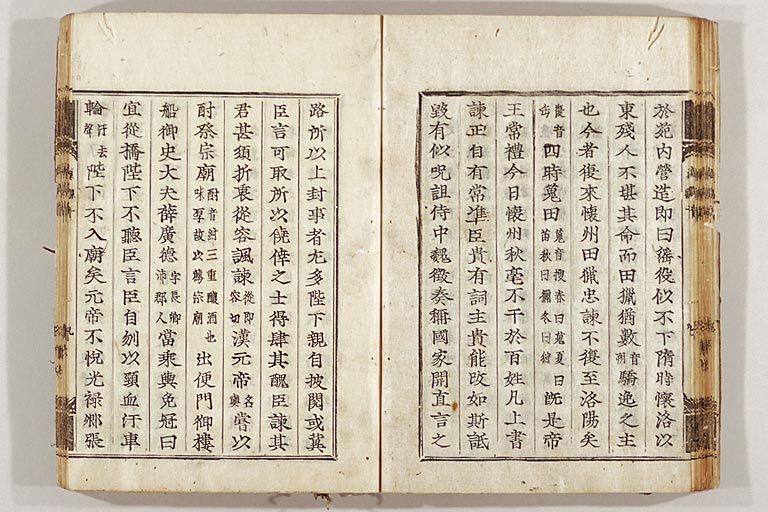 於苑內營造即曰徭役似不下隋時懷洛以
東殘人不堪其命而田獵猶數音朔驕逸之主
也今者復來懷州田獵忠諫不復至洛陽矣
四時蒐田蒐音搜春曰蒐夏曰苗秋曰獮冬曰狩既是帝
王常禮今日懷州秋毫不干於百姓凡上書
諫正自有常準臣貴有詞主貴能改如斯詆
毀有似呪詛侍中魏徵奏稱國家開直言之
路所以上封事者尤多陛下親自披閱或冀
臣言可取所以僥倖之士得肆其醜臣諫其
君甚須折衷從容諷諫從即容切漢元帝名奭嘗以
酎祭宗廟酎音紂三重釀酒也味厚故以薦宗廟出便門御樓
船御史大夫薛廣德字長卿沛郡人當乘輿免冠曰
宜從橋陛下不聽臣言臣自刎以頸血汙車
輪汙去聲陛下不入廟矣元帝不悅光祿鄉張